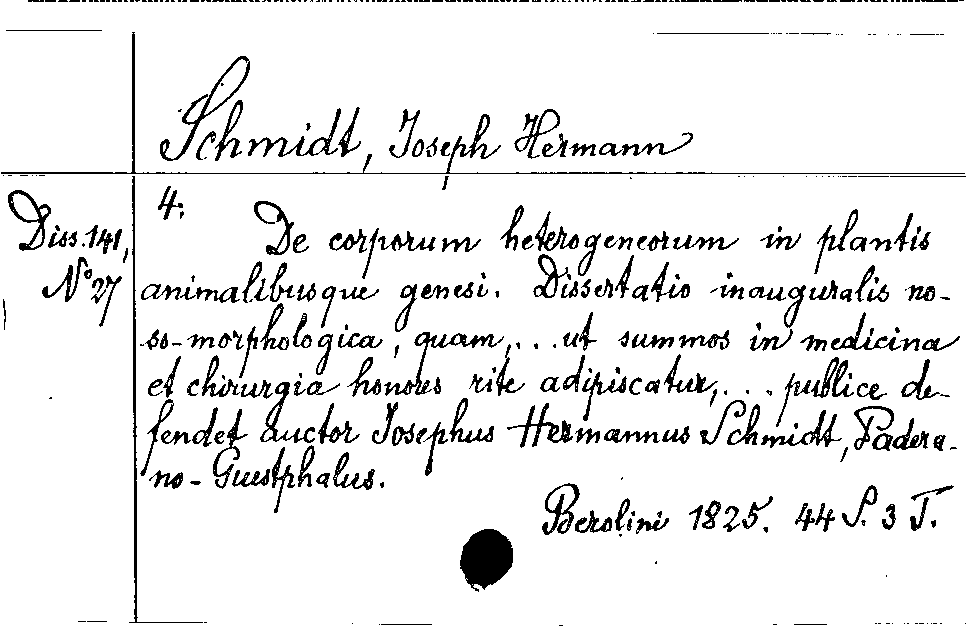 Schmidt, Joseph Hermann
Diss. 141,
N° 27
4:
De corporum heterogeneorum in plantis
animalibusque genesi. Dissertatio inauguralis no-
so-morphologica, quam,... ut summos in medicina
et chirurgia honores rite adipiscatur,... publice de-
fendet auctor Josephus Hermannus Schmidt, Padera-
no-Guestphalus.
Berolini 1825. 44 S. 3 T.